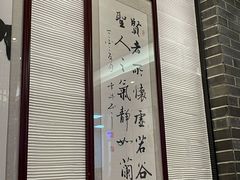 賢者所懷虛若谷
聖人之氣靜如蘭